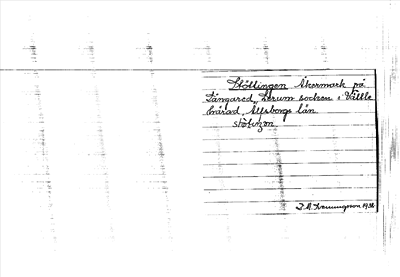 Stötlingen Åkermark på
Långared, Lerum socken i Vättle
härad, Älvborgs län
stötiŋən
D. A. Henningsson 1936